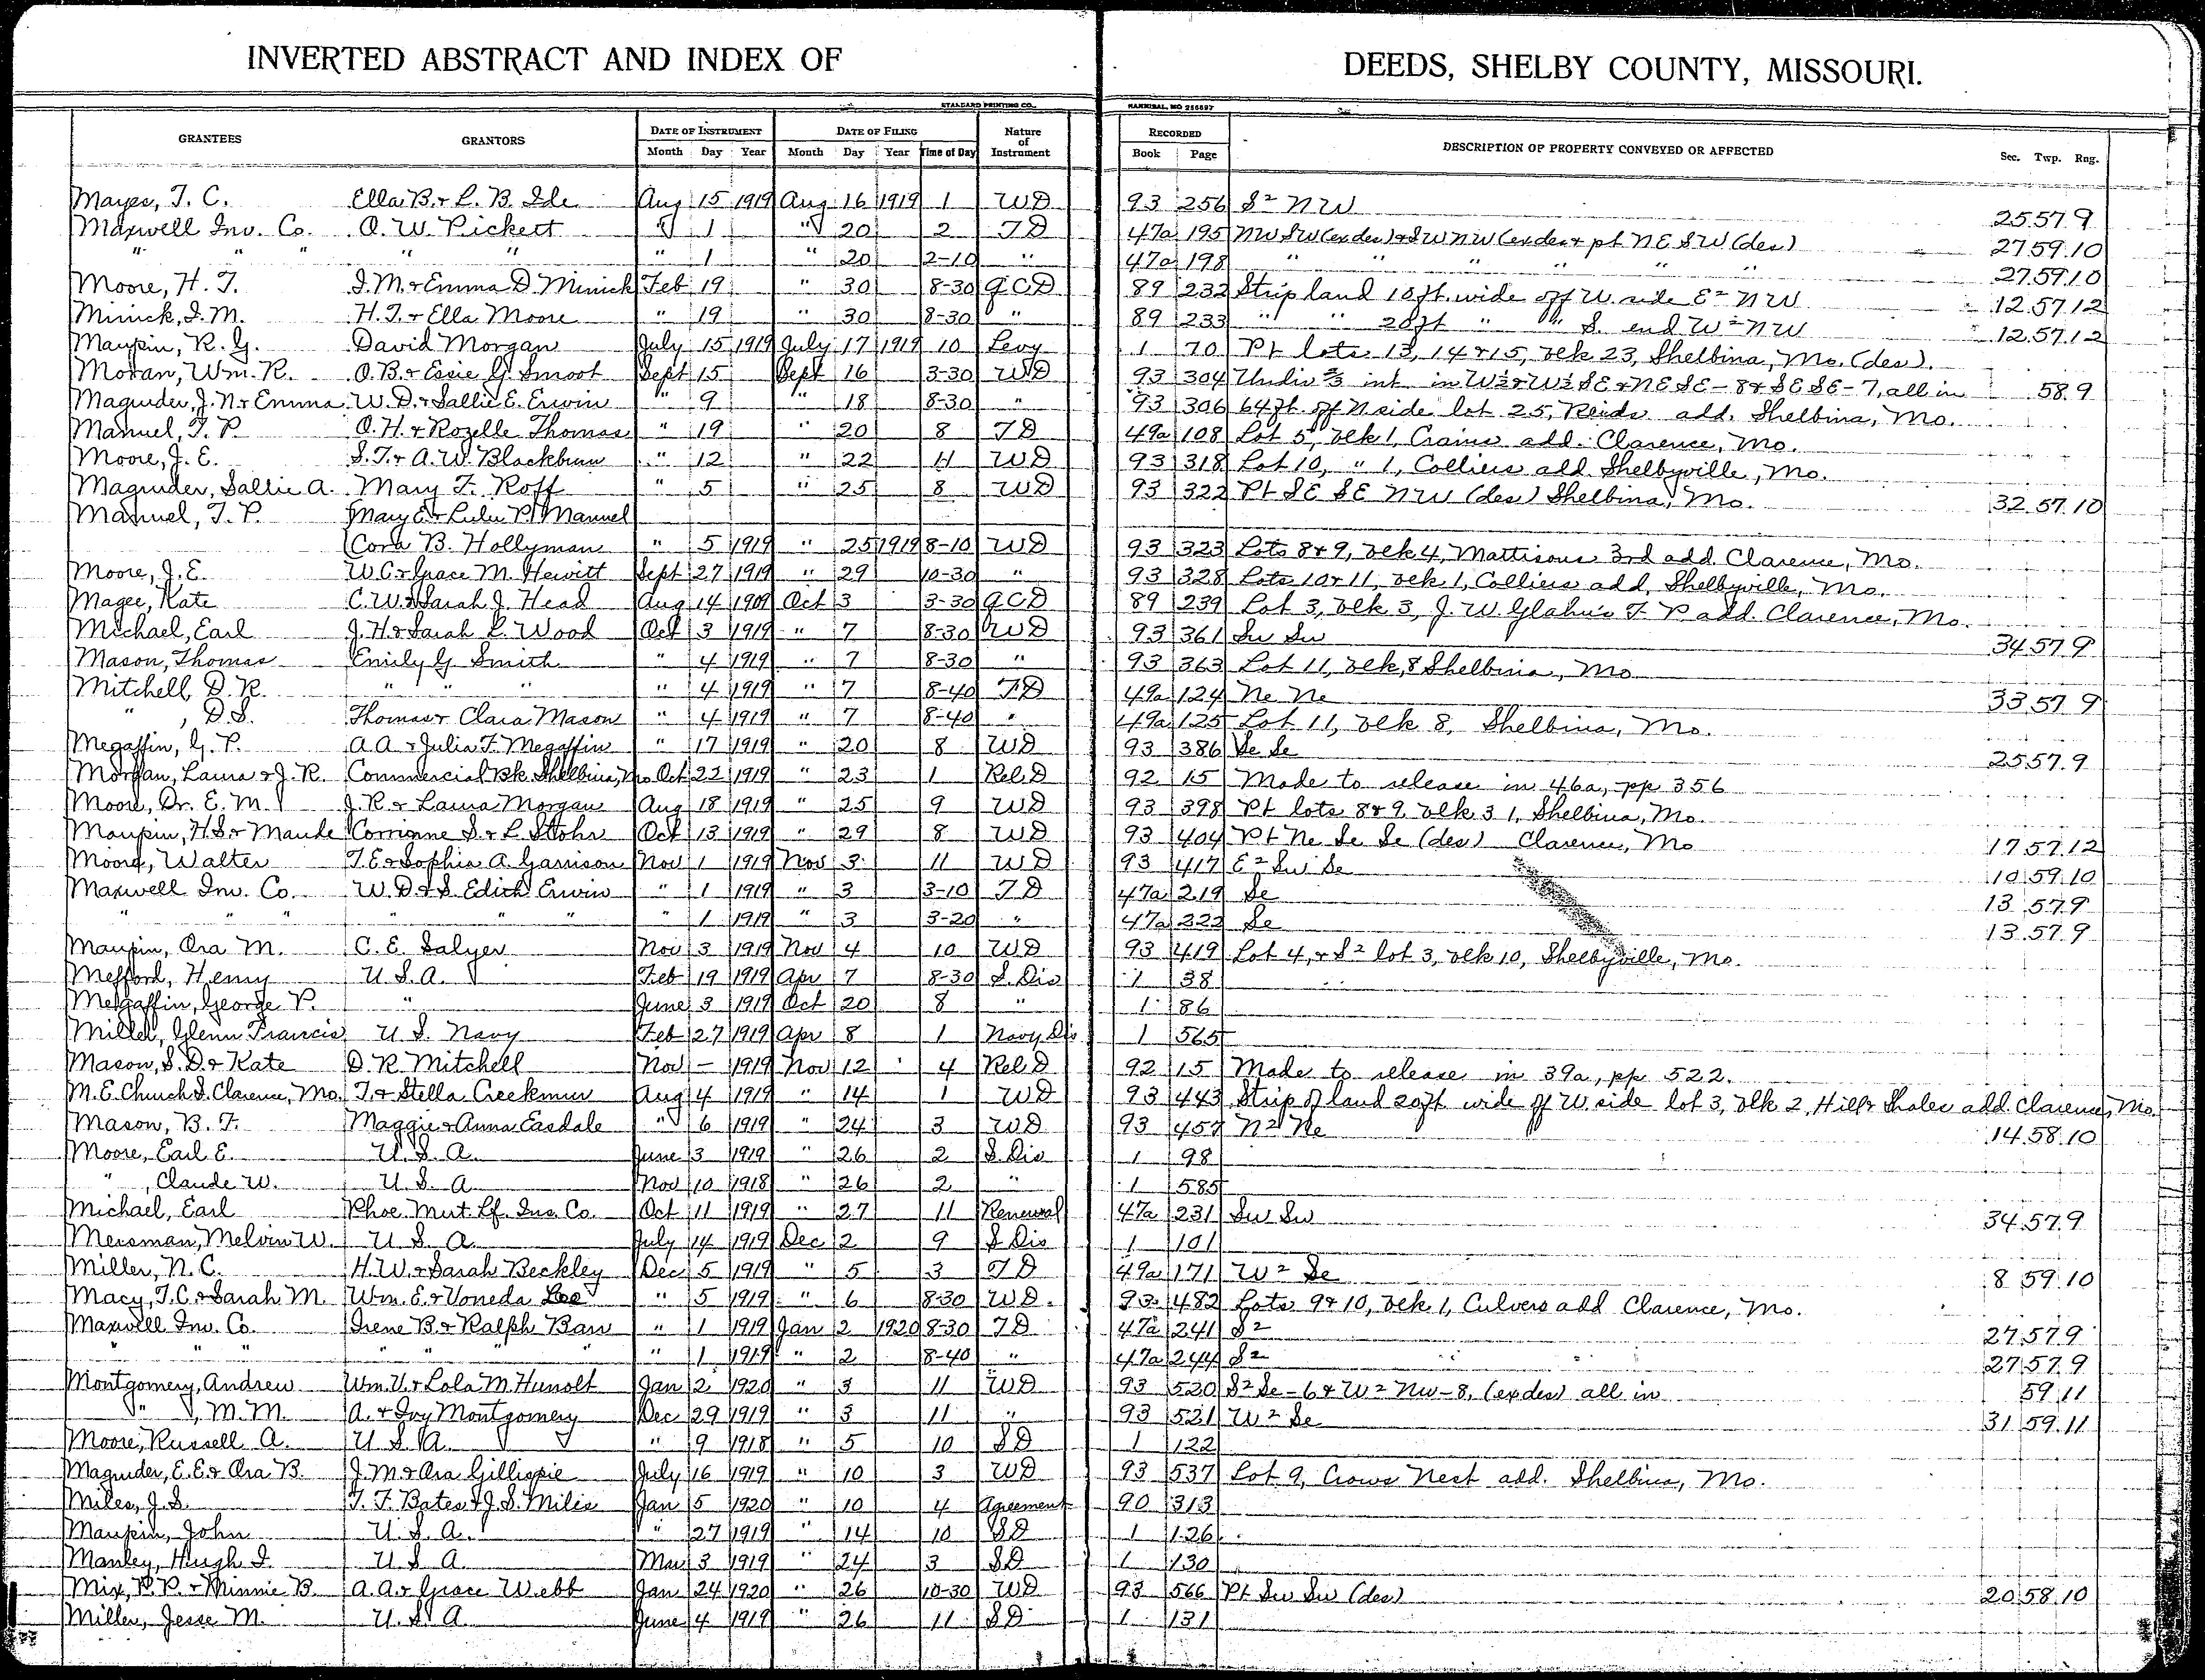 INVERTED ABSTRACT AND INDEX OF DEEDS, SHELBY COUNTY, MISSOURI.
STANDARD PRINTING CO. HANNIBAL, MO
GRANTEES GRANTORS DATE OF INSTRUMENT DATE OF FILING Nature of Instrument RECORDED DESCRIPTION OF PROPERTY CONVEYED OR AFFECTED Sec. Twp. Rng.
Month Day Year Month Day Year Time of Day Book Page
Mayes, T. C. Ella B. & L. B. Ide Aug 15 1919 Aug 16 1919 1 WD 93 256 S² NW 25 57 9
Maxwell Inv. Co. O. W. Pickett " 1 " 20 2 TD 47a 195 NW SW (ex des) & SW NW (ex des & pt NE SW (des) 27 59 10
" " " " " " 1 " 20 2-10 " 47a 198 " " " " " " 27 59 10
Moore, H. T. I. M. & Emma D. Minick Feb 19 " 30 8-30 QCD 89 232 Strip land 10 ft. wide off W. side E² NW 12 57 12
Minick, I. M. H. T. & Ella Moore " 19 " 30 8-30 " 89 233 " " 20 ft " " S. end W² NW 12 57 12
Maupin, R. G. David Morgan July 15 1919 July 17 1919 10 Levy 1 70 Pt lots 13, 14 & 15, blk 23, Shelbina, Mo. (des).
Moran, Wm. R. O. B. & Essie G. Smoot Sept 15 Sept 16 3-30 WD 93 304 Undiv ⅔ int in W½ & W½ SE & NE SE - 8 & SE SE - 7, all in 58 9
Magruder, J. N. & Emma W. D. & Sallie E. Erwin " 9 " 18 8-30 " 93 306 64 ft. off N side lot 25, Reids add. Shelbina, Mo.
Manuel, T. P. O. H. & Rozelle Thomas " 19 " 20 8 TD 49a 108 Lot 5, blk 1, Crains add. Clarence, Mo.
Moore, J. E. S. T. & A. W. Blackburn " 12 " 22 11 WD 93 318 Lot 10, " 1, Colliers add Shelbyville, Mo.
Magruder, Sallie A. Mary F. Roff " 5 " 25 8 WD 93 322 Pt SE SE NW (des) Shelbina, Mo. 32 57 10
Manuel, T. P. Mary E. & Lulu P. Manuel
Cora B. Hollyman " 5 1919 " 25 1919 8-10 WD 93 323 Lots 8 & 9, blk 4, Mattisons 3rd add. Clarence, Mo.
Moore, J. E. W. C. & Grace M. Hewitt Sept 27 1919 " 29 10-30 " 93 328 Lots 10 & 11, blk 1, Colliers add, Shelbyville, Mo.
Magee, Kate C. W. & Sarah J. Head Aug 14 1909 Oct 3 3-30 QCD 89 239 Lot 3, blk 3, J. W. Glahn's F. P. add. Clarence, Mo.
Michael, Earl J. H. & Sarah L. Wood Oct 3 1919 " 7 8-30 WD 93 361 Sw Sw 34 57 9
Mason, Thomas Emily G. Smith " 4 1919 " 7 8-30 " 93 363 Lot 11, blk, 8 Shelbina, Mo
Mitchell D. R. " " " " 4 1919 " 7 8-40 TD 49a 124 Ne Ne 33 57 9
" , D. S. Thomas & Clara Mason " 4 1919 " 7 8-40 " 49a 125 Lot 11, blk 8, Shelbina, Mo.
Megaffin, G. P. A. A. & Julia F. Megaffin " 17 1919 " 20 8 WD 93 386 Se Se 25 57 9
Morgan, Laura & J. R. Commercial Bk. Shelbina, Mo Oct 22 1919 " 23 1 Rel D 92 15 Made to release in 46a, pp 356
Moore, Dr. E. M. J. R. & Laura Morgan Aug 18 1919 " 25 9 WD 93 398 Pt lots 8 & 9, blk 31, Shelbina, Mo.
Maupin, H. S. & Maude Corrinne S. & L. Stohr Oct 13 1919 " 29 8 WD 93 404 Pt Ne Se Se (des) Clarence, Mo 17 57 12
Moore, Walter T. E. & Sophia A. Garrison Nov 1 1919 Nov 3 11 WD 93 417 E² Sw Se 10 59 10
Maxwell Inv. Co. W. D. & S. Edith Erwin " 1 1919 " 3 3-10 TD 47a 219 Se 13 57 9
" " " " " " " 1 1919 " 3 3-20 " 47a 222 Se 13 57 9
Maupin, Ora M. C. E. Salyer Nov 3 1919 Nov 4 10 WD 93 419 Lot 4, & S² lot 3, blk 10, Shelbyville, Mo.
Mefford, Henry U. S. A. Feb 19 1919 Apr 7 8-30 S. Dis 1 38
Megaffin, George P. " June 3 1919 Oct 20 8 " 1 86
Miller, Glenn Francis U. S. Navy Feb 27 1919 Apr 8 1 Navy Dis 1 565
Mason, S. D. & Kate D. R. Mitchell Nov - 1919 Nov 12 4 Rel D 92 15 Made to release in 39a, pp 522.
M. E. Church S. Clarence, Mo. T. & Stella Creekmur Aug 4 1919 " 14 1 WD 93 443 Strip of land 20 ft wide off W. side lot 3, blk 2, Hill & Shales add. Clarence, Mo.
Mason, B. F. Maggie & Anna Easdale " 6 1919 " 24 3 WD 93 457 N² Ne 14 58 10
Moore, Earl E. U. S. A. June 3 1919 " 26 2 S. Dis 1 98
" , Claude W. U. S. A Nov 10 1918 " 26 2 " 1 585
Michael, Earl Phoe. Mut. Lf. Ins. Co. Oct 11 1919 " 27 11 Renewal 47a 231 Sw Sw 34 57 9
Mersman, Melvin W. U. S. A. July 14 1919 Dec 2 9 S Dis 1 101
Miller, N. C. H. W. & Sarah Beckley Dec 5 1919 " 5 3 TD 49a 171 W² Se 8 59 10
Macy, T. C. & Sarah M. Wm. E. & Voneda Lee " 5 1919 " 6 8-30 WD. 93 482 Lots 9 & 10, blk 1, Culvers add Clarence, Mo.
Maxwell Inv. Co. Irene B. & Ralph Barr " 1 1919 Jan 2 1920 8-30 TD 47a 241 S² 27 57 9
" " " " " " " " 1 1919 " 2 8-40 " 47a 244 S² 27 57 9
Montgomery, Andrew Wm. V. & Lola M. Hunolt Jan 2 1920 " 3 11 WD 93 520 S² Se - 6 & W² Nw - 8, (ex des) all in 59 11
" , M. M. A. & Ivy Montgomery Dec 29 1919 " 3 11 " 93 521 W² Se 31 59 11
Moore, Russell A. U S A. " 9 1918 " 5 10 SD 1 122
Magruder, E. E. & Ora B. J. M. & Ora Gillispie July 16 1919 " 10 3 WD 93 537 Lot 9, Crows Nest add. Shelbina, Mo.
Miles, J. S. T. F. Bates & J. S. Milis Jan 5 1920 " 10 4 Agreement 90 313
Maupin, John U. S. A. " 27 1919 " 14 10 SD 1 126
Manley, Hugh I. U S A Mar 3 1919 " 24 3 SD 1 130
Mix, P. P. & Minnie B. A. A. & Grace Webb Jan 24 1920 " 26 10-30 WD 93 566 Pt Sw Sw (des) 20 58 10
Miller, Jesse M. U. S. A June 4 1919 " 26 11 SD 1 131